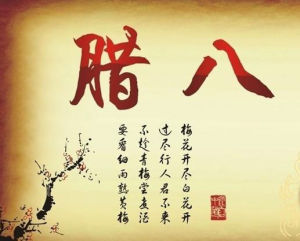 腊八
梅花开尽百花开
过尽行人君不来
不趁青梅尝煮酒
要看细雨熟黄梅